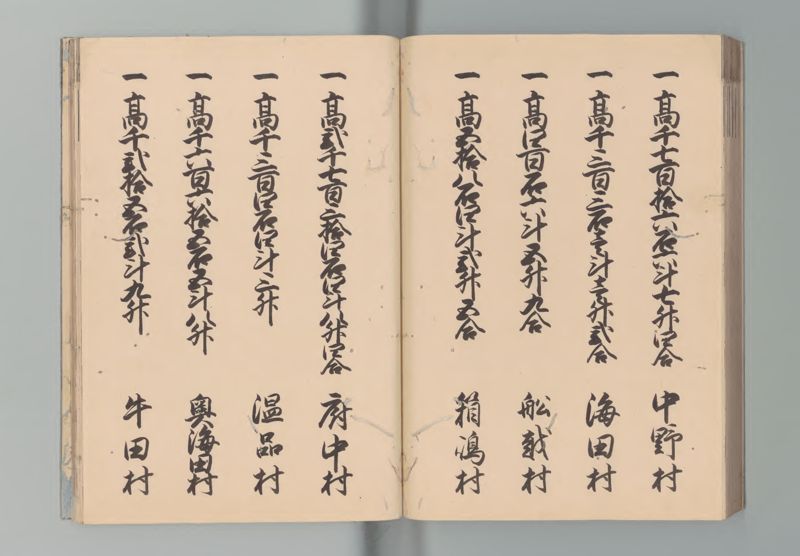 一 高千七百拾六石六斗七升四合 中野村
一 高千三百三石三斗壱升弐合 海田村
一 高四百石六斗五升九合 船越村
一 高五拾八石四斗弐升五合 箱嶋村
一 高弐千七百三拾四石四斗八升四合 府中村
一 高千三百四石四斗三升 温品村
一 高千六百六拾五石五斗八升 奥海田村
一 高千弐拾五石弐斗九升 牛田村